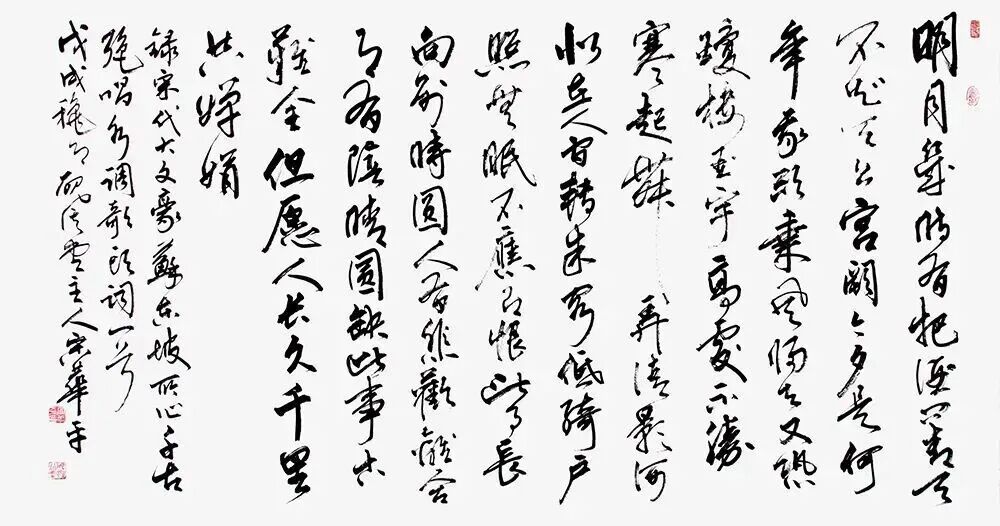 明月幾时有把酒问青天
不知天上宫闕今夕是何
年我欲乘风归去又恐
瓊楼玉宇高處不勝
寒起舞弄清影何
似在人间轉朱阁低绮户
照無眠不應有恨何事長
向别時圆人有悲歡離合
月有陰晴圆缺此事古
難全但愿人长久千里
共嬋娟
録宋代大文豪蘇东坡所作千古
绝唱水调歌头词一首
戊戌秋月主人宋華平